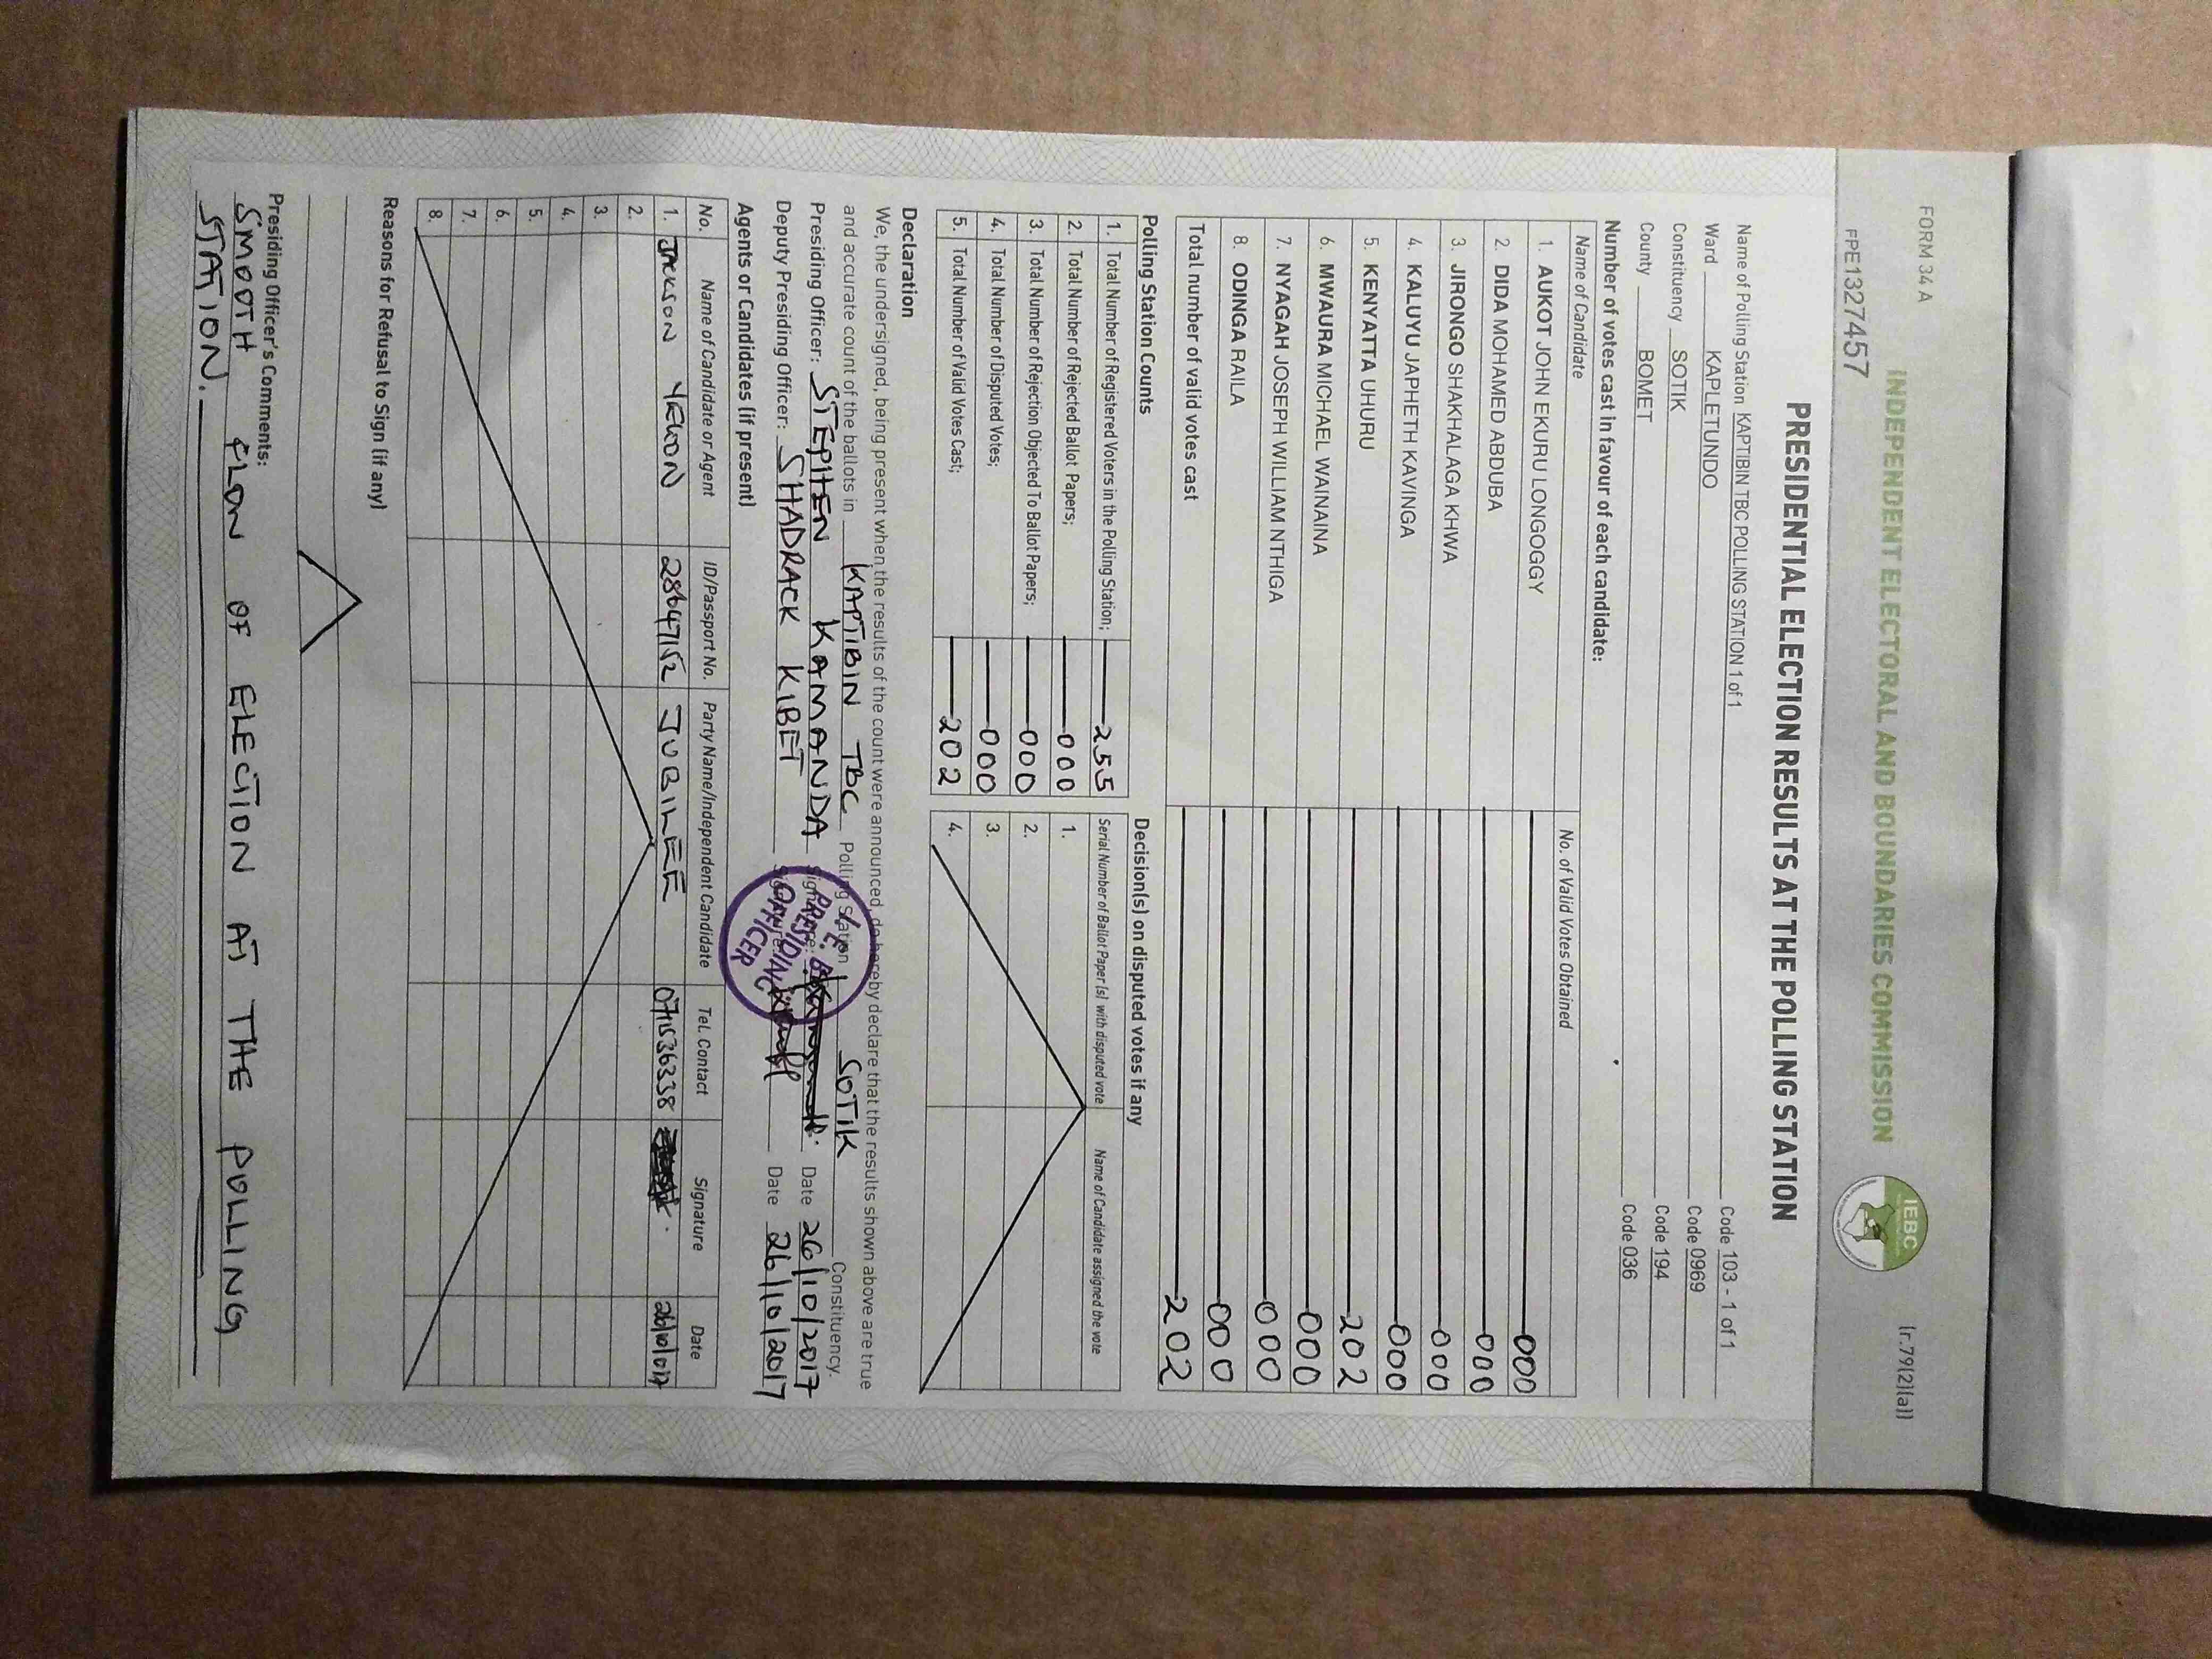 FORM 34 A
(r.79(2)(a))
INDEPENDENT ELECTORAL AND BOUNDARIES COMMISSION
IEBC
FPE1327457
PRESIDENTIAL ELECTION RESULTS AT THE POLLING STATION
Name of Polling Station KAPTIBIN TBC POLLING STATION 1 of 1 Code 103 - 1 of 1
Ward KAPLETUNDO Code 0969
Constituency SOTIK Code 194
County BOMET Code 036
Number of votes cast in favour of each candidate:
Name of Candidate No. of Valid Votes Obtained
1. AUKOT JOHN EKURU LONGOGGY 000
2. DIDA MOHAMED ABDUBA 000
3. JIRONGO SHAKHALAGA KHWA 000
4. KALUYU JAPHETH KAVINGA 000
5. KENYATTA UHURU 202
6. MWAURA MICHAEL WAINAINA 000
7. NYAGAH JOSEPH WILLIAM NTHIGA 000
8. ODINGA RAILA 000
Total number of valid votes cast 202
Polling Station Counts Decision(s) on disputed votes if any
1. Total Number of Registered Voters in the Polling Station; 255 Serial Number of Ballot Paper (s) with disputed vote Name of Candidate assigned the vote
2. Total Number of Rejected Ballot Papers; 000 1.
3. Total Number of Rejection Objected To Ballot Papers; 000 2.
4. Total Number of Disputed Votes; 000 3.
5. Total Number of Valid Votes Cast; 202 4.
Declaration
We, the undersigned, being present when the results of the count were announced, do hereby declare that the results shown above are true
and accurate count of the ballots in KAPTIBIN TBC Polling Station SOTIK Constituency.
Presiding Officer: STEPHEN KAMANDA Signature: Date 26/10/2017
Deputy Presiding Officer: SHADRACK KIBET Signature: Date 26/10/2017
PRESIDING
OFFICER
Agents or Candidates (if present)
No. Name of Candidate or Agent ID/Passport No. Party Name/Independent Candidate Tel. Contact Signature Date
1. JACKSON YEGON 28647152 JUBILEE 071536338 26/10/017
2.
3.
4.
5.
6.
7.
8.
Reasons for Refusal to Sign (if any)
Presiding Officer's Comments:
SMOOTH FLOW OF ELECTION AT THE POLLING
STATION.